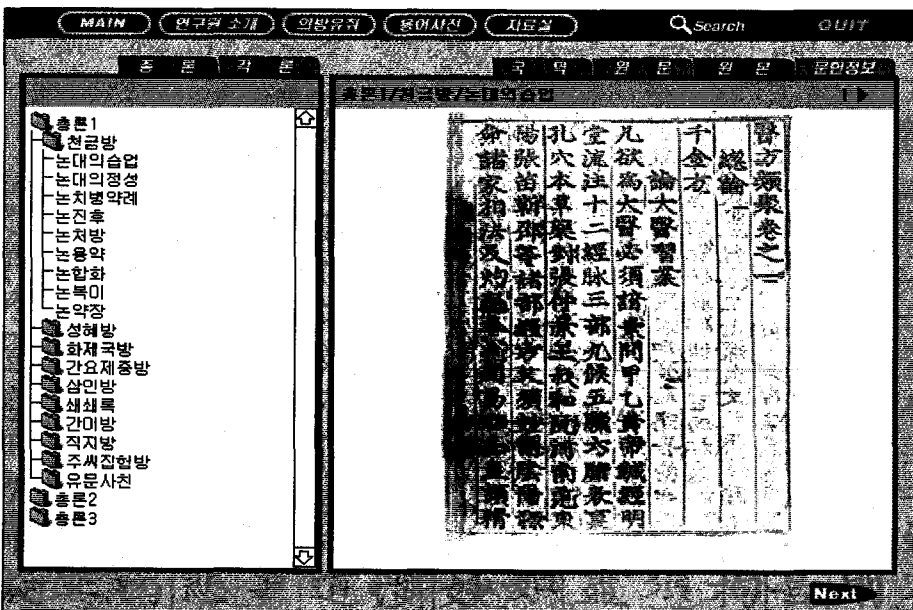 MAIN 연구원 소개 의방유취 용어사전 자료실 Search QUIT
총 론 각 론 국 역 원 문 원 문 문헌정보
총론1/천금방/논대의습업 1
총론1
천금방
논대의습업
논대의정성
논치병약례
논진후
논처방
논용약
논합화
논복이
논약장
성혜방
화제국방
간요제중방
삼인방
쇄쇄록
간이방
직지방
주씨집험방
유문사친
총론2
총론3
醫方類聚卷之一
總論一
千金方
論大醫習業
凡欲爲大醫必須諳素問甲乙黃帝鍼經明
堂流注十二經脉三部九候五臟六腑表裏
孔穴本草藥對張仲景王叔和阮河南范東
陽張苗靳邵等諸部經方又須妙解陰陽祿
命諸家相法及灼龜
Next